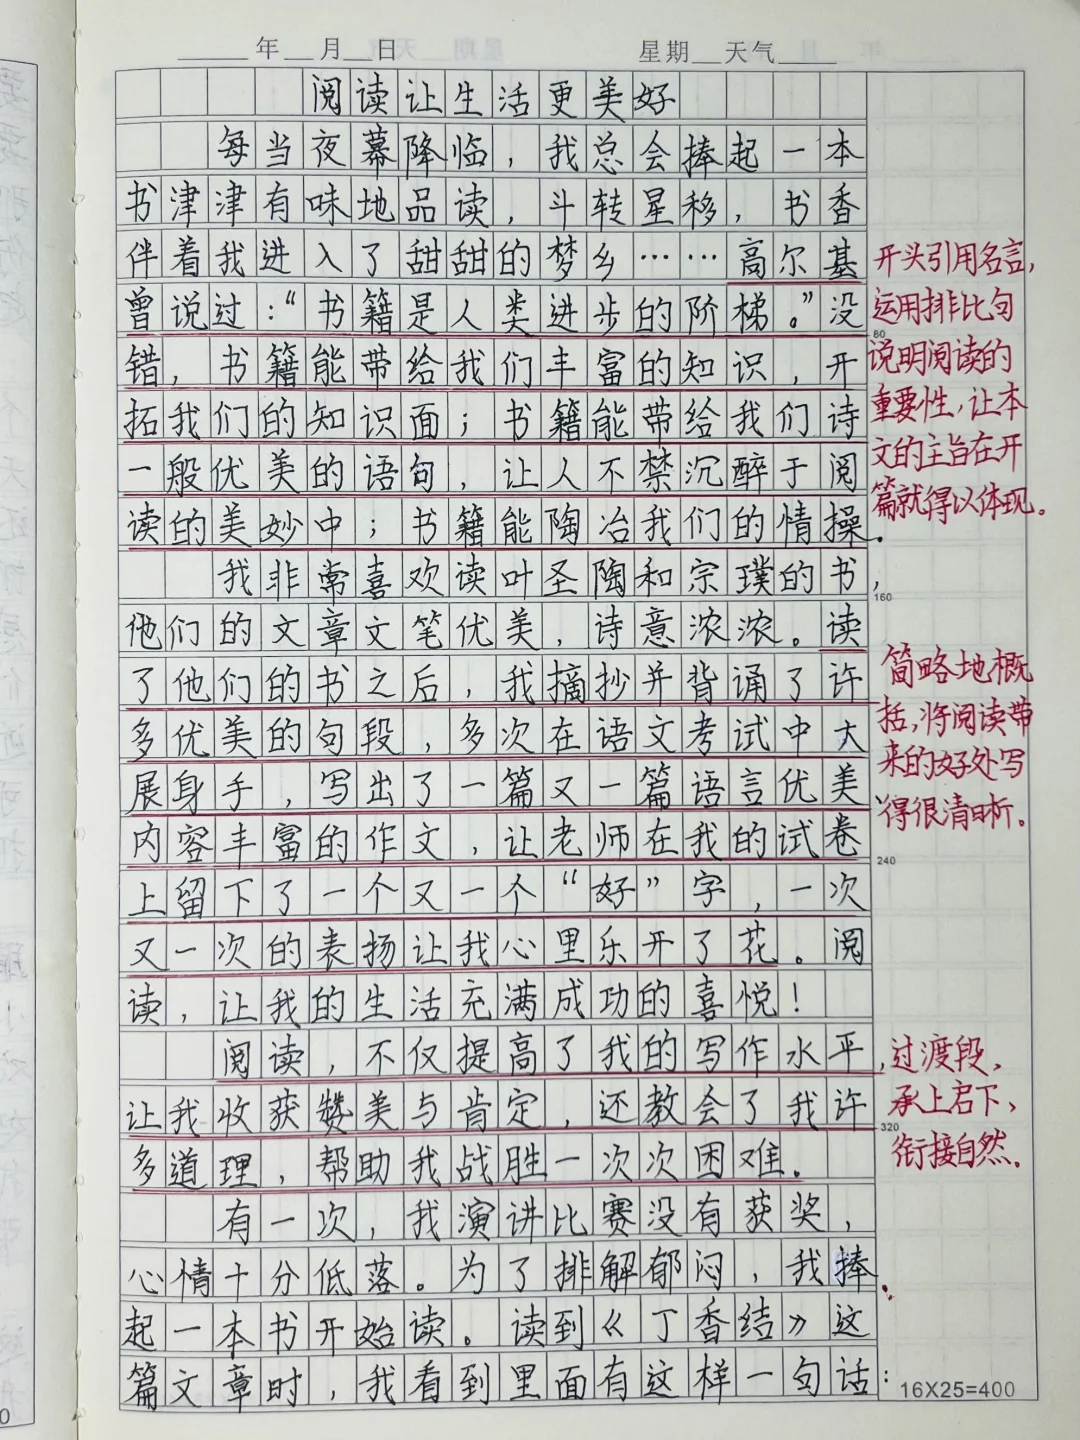 年 月 日 星期 天气
阅读让生活更美好
每当夜幕降临，我总会捧起一本
书津津有味地品读，斗转星移，书香
伴着我进入了甜甜的梦乡……高尔基
曾说过：“书籍是人类进步的阶梯。”没
80
错，书籍能带给我们丰富的知识，开
拓我们的知识面；书籍能带给我们诗
一般优美的语句，让人不禁沉醉于阅
读的美妙中；书籍能陶冶我们的情操。
开头引用名言，
运用排比句
说明阅读的
重要性，让本
文的主旨在开
篇就得以体现。
我非常喜欢读叶圣陶和宗璞的书，
160
他们的文章文笔优美，诗意浓浓。读
了他们的书之后，我摘抄并背诵了许
多优美的句段，多次在语文考试中大
展身手，写出了一篇又一篇语言优美
内容丰富的作文，让老师在我的试卷
240
上留下了一个又一个“好”字，一次
又一次的表扬让我心里乐开了花。阅
读，让我的生活充满成功的喜悦！
简略地概
括，将阅读带
来的好处写
得很清晰。
阅读，不仅提高了我的写作水平，
让我收获赞美与肯定，还教会了我许
320
多道理，帮助我战胜一次次困难。
过渡段，
承上启下，
衔接自然。
有一次，我演讲比赛没有获奖，
心情十分低落。为了排解郁闷，我捧
起一本书开始读。读到《丁香结》这
篇文章时，我看到里面有这样一句话：
16X25=400